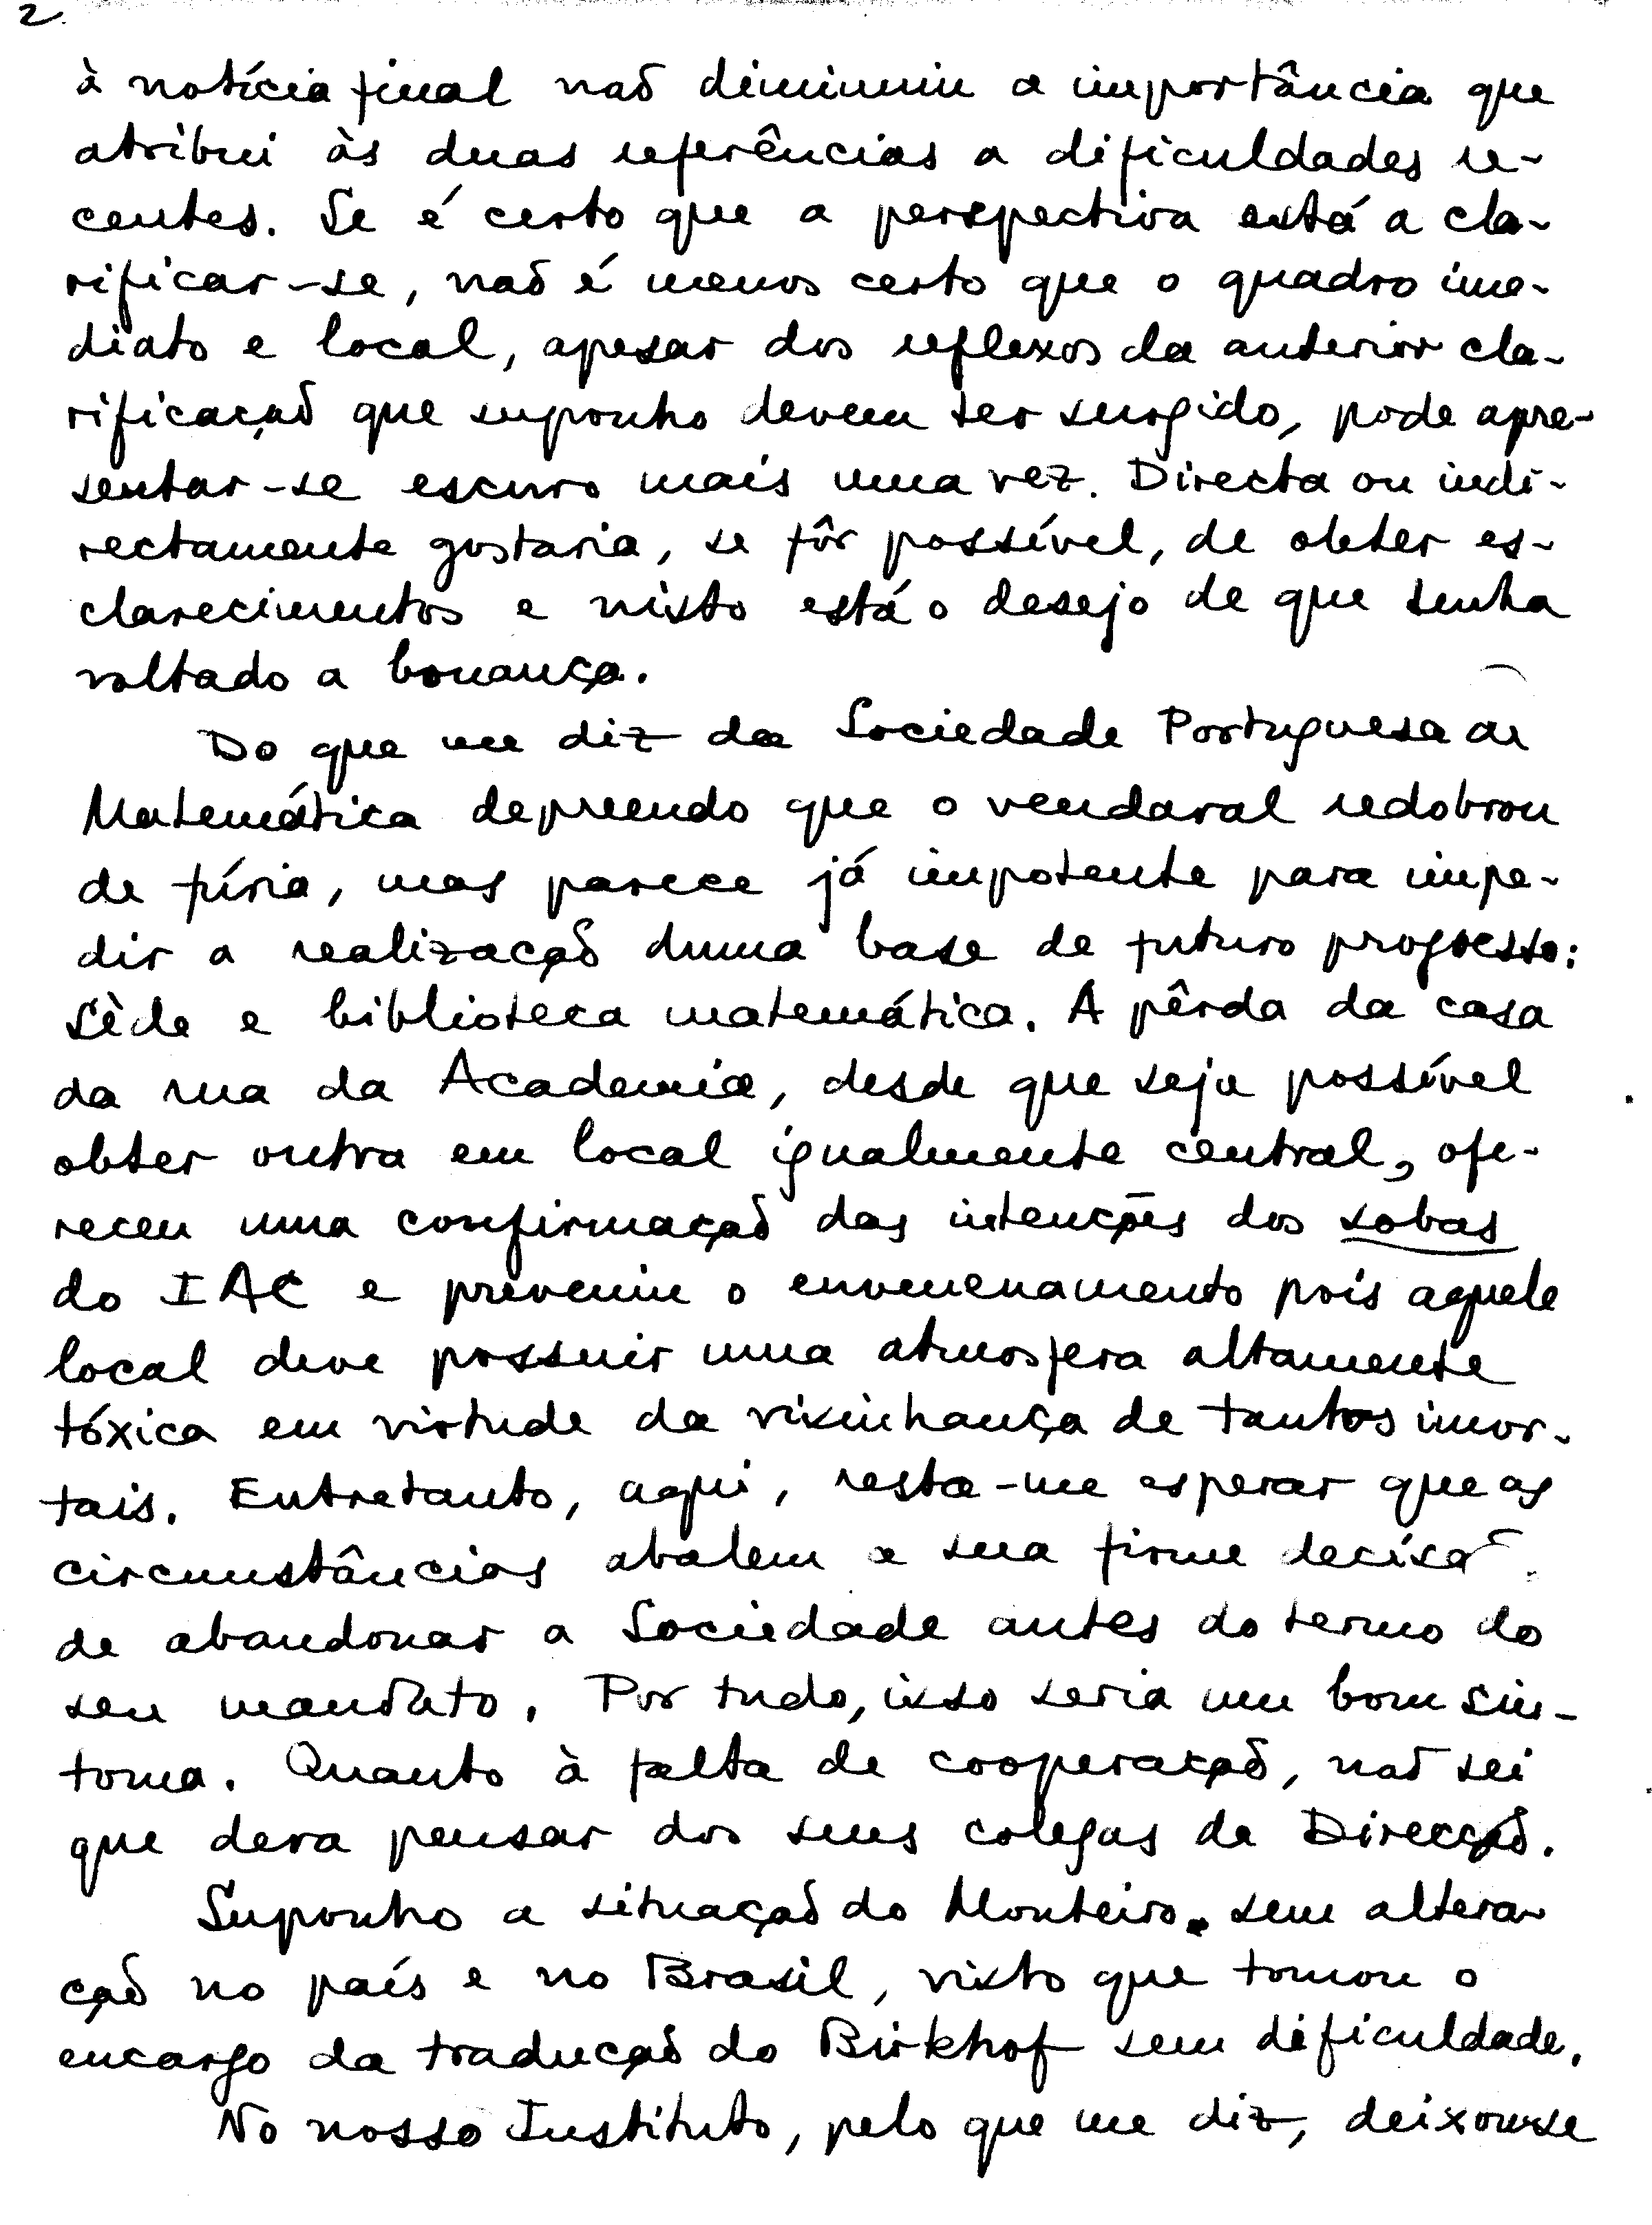 2.
à notícia final não diminuiu a importância que
atribui às duas referências a dificuldades re-
centes. Se é certo que a perspectiva está a cla-
rificar-se, não é menos certo que o quadro ime-
diato e local, apesar dos reflexos da anterior cla-
rificação que suponho devem ter surgido, pode apre-
sentar-se escuro mais uma vez. Directa ou indi-
rectamente gostaria, se fôr possível, de obter es-
clarecimentos e nisto está o desejo de que tenha
voltado a bonança.
Do que me diz da Sociedade Portuguesa de
Matemática depreendo que o vendaval redobrou
de fúria, mas parece já impotente para impe-
dir a realização duma base de futuro progresso:
Sède e biblioteca matemática. A pêrda da casa
da rua da Academia, desde que seja possível
obter outra em local igualmente central, ofe-
receu uma confirmação das intenções dos sobas
do IAC e preveniu o envenenamento pois aquele
local deve possuir uma atmosfera altamente
tóxica em virtude da visinhança de tantos imor-
tais. Entretanto, aqui, resta-me esperar que as
circunstâncias abalem a sua firme decisão
de abandonar a Sociedade antes do termo do
seu mandato. Por tudo, isso seria um bom sin-
toma. Quanto à falta de cooperação, não sei
que deva pensar dos seus colegas da Direcção.
Suponho a situação do Monteiro sem altera-
ção no país e no Brasil, visto que tomou o
encargo da tradução do Birkhof sem dificuldade.
No nosso Instituto, pelo que me diz, deixou-se